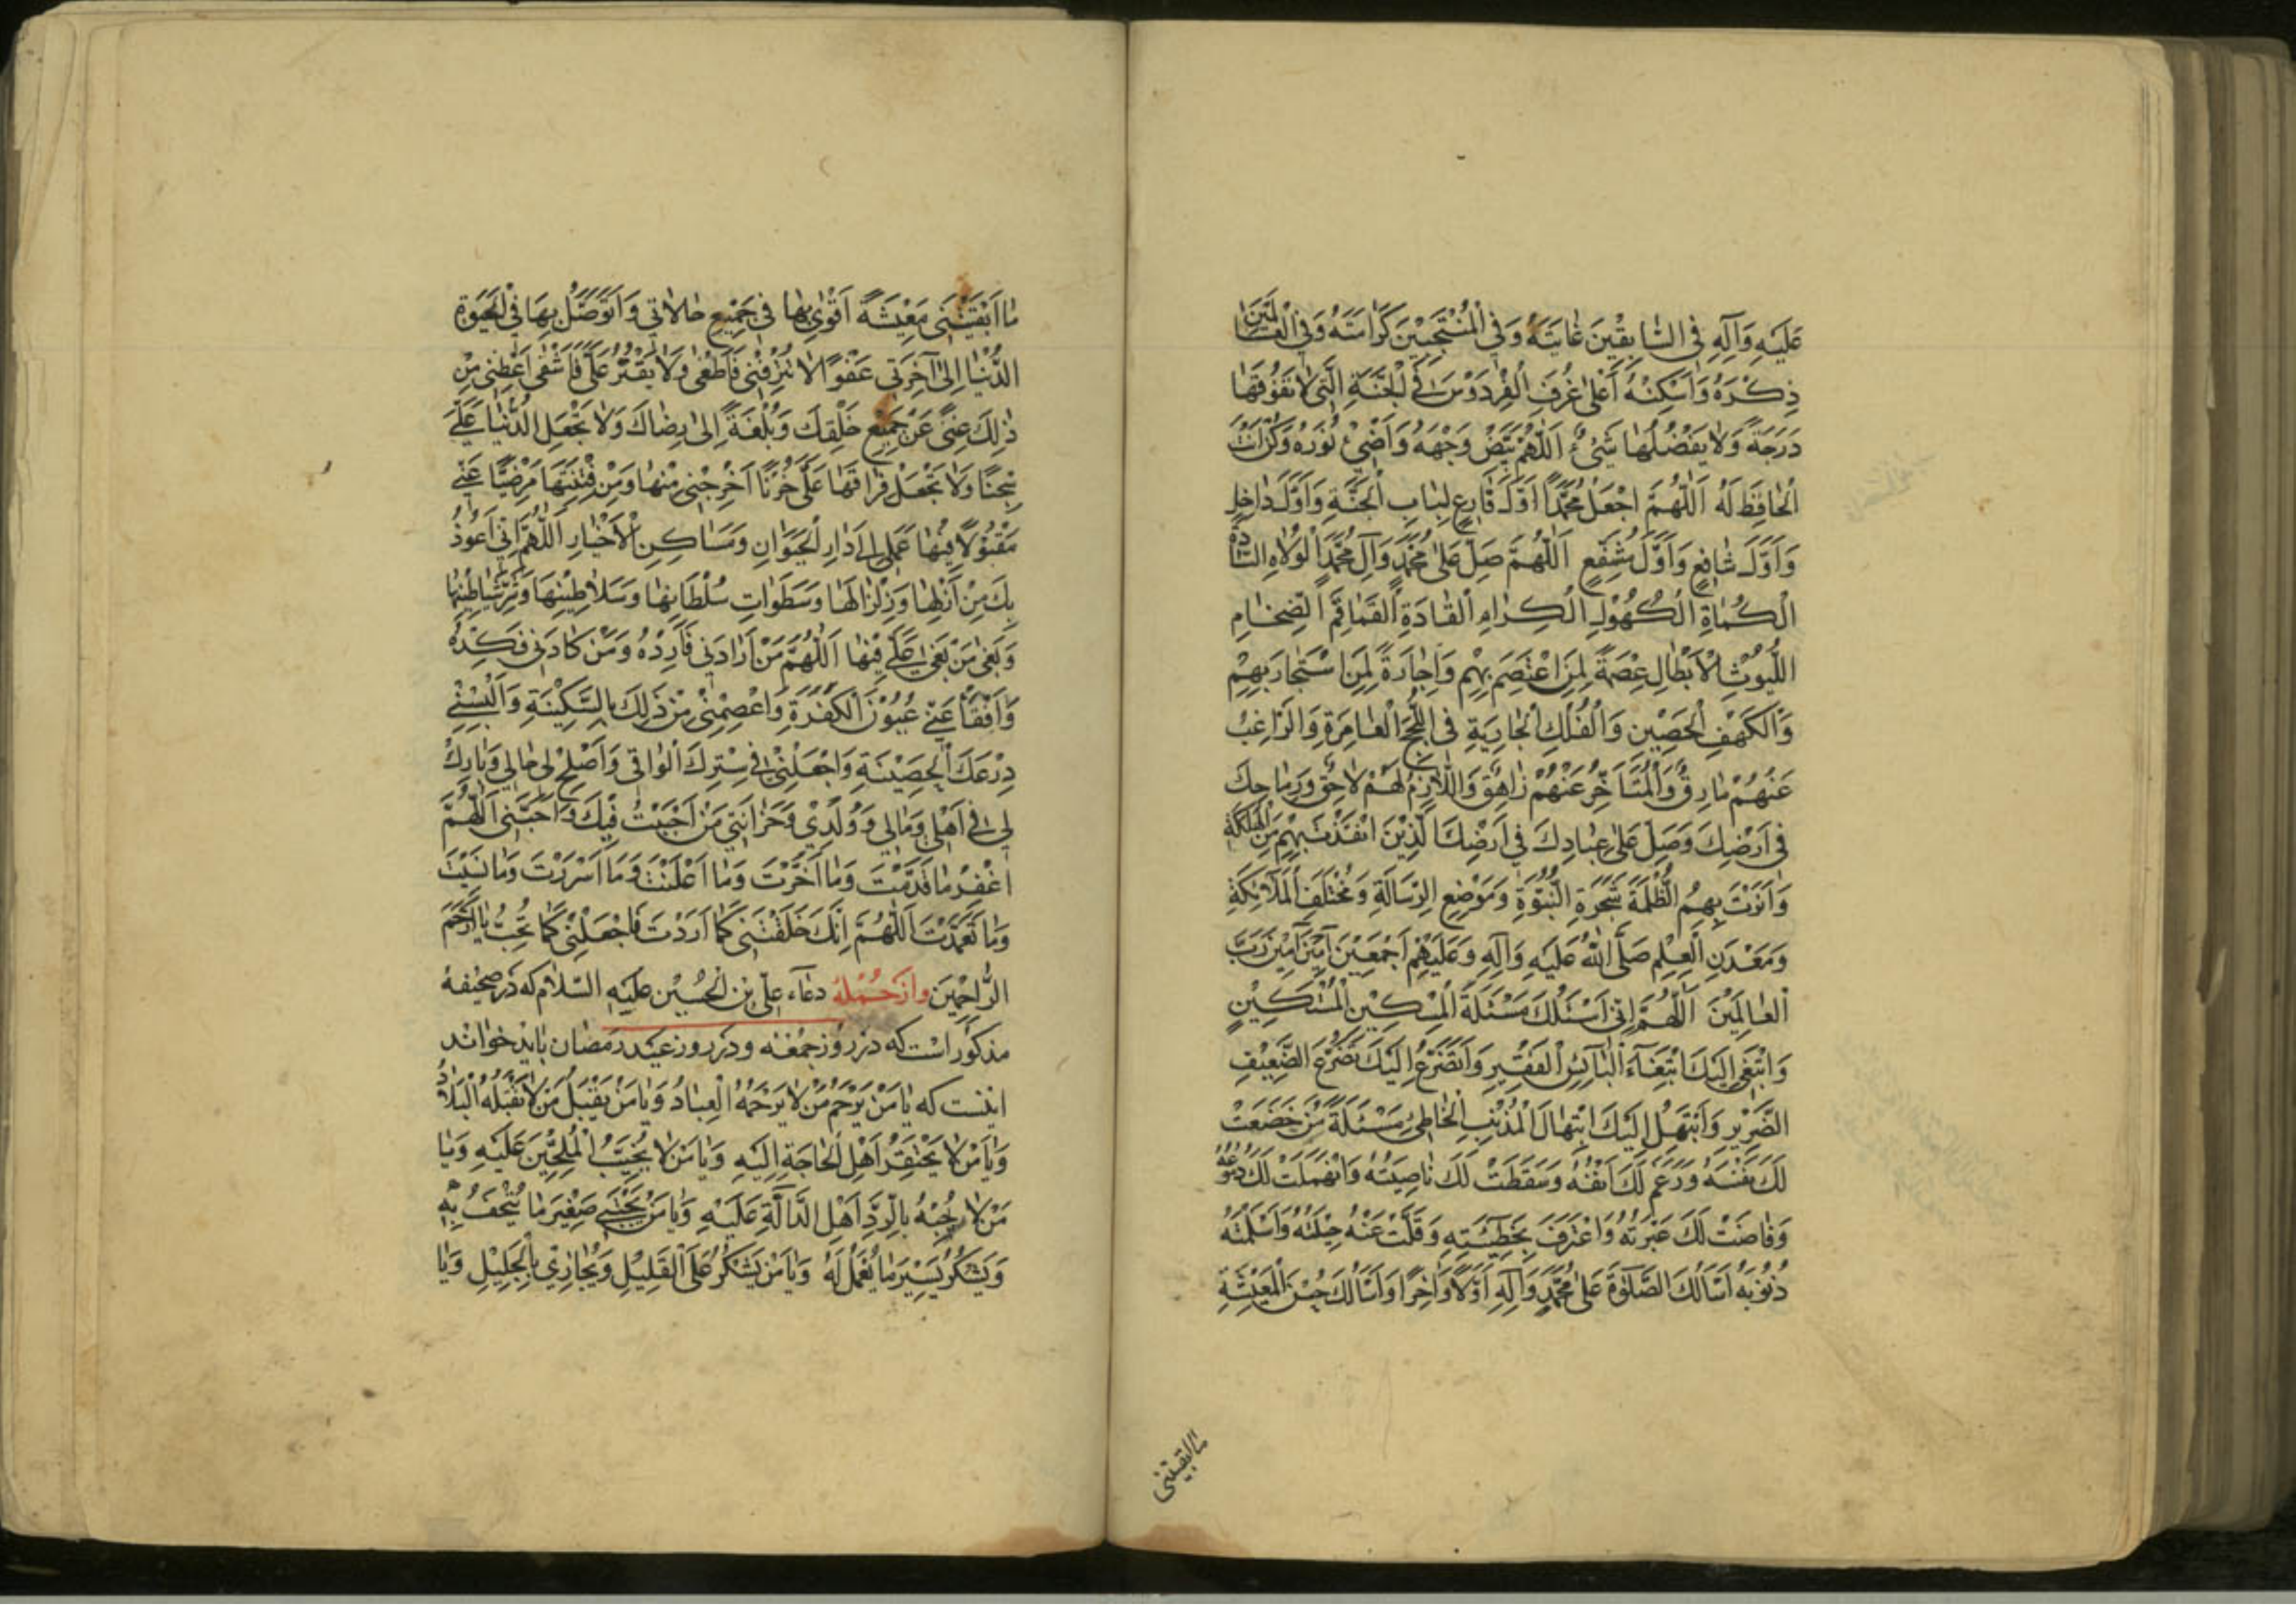 عَلَيْهِ وَآلِهِ فِي السَّابِقِينَ غَايَتَهُ وَفِي الْمُنْتَجَبِينَ كَرَامَتَهُ وَفِي الْعَالَمِينَ
ذِكْرَهُ وَأَسْكِنْهُ أَعْلَى غُرَفِ الْفِرْدَوْسِ فِي الْجَنَّةِ الَّتِي لَا تَفُوقُهَا
دَرَجَةٌ وَلَا يَفْضُلُهَا شَيْءٌ اَللّٰهُمَّ بَيِّضْ وَجْهَهُ وَأَضِئْ نُورَهُ وَكُنْ أَنْتَ
الْحَافِظَ لَهُ اَللّٰهُمَّ اجْعَلْ مُحَمَّدًا أَوَّلَ قَارِعٍ لِبَابِ الْجَنَّةِ وَأَوَّلَ دَاخِلٍ
وَأَوَّلَ شَافِعٍ وَأَوَّلَ مُشَفَّعٍ اَللّٰهُمَّ صَلِّ عَلَى مُحَمَّدٍ وَآلِ مُحَمَّدٍ الْوُلَاةِ السَّادَةِ
الْكُمَاةِ الْكُهُولِ الْكِرَامِ الْقَادَةِ الْقَمَاقِمِ الضِّخَامِ
اللُّيُوثِ الْأَبْطَالِ عِصْمَةً لِمَنِ اعْتَصَمَ بِهِمْ وَإِجَارَةً لِمَنِ اسْتَجَارَ بِهِمْ
وَالْكَهْفِ الْحَصِينِ وَالْفُلْكِ الْجَارِيَةِ فِي اللُّجَجِ الْغَامِرَةِ وَالرَّاغِبُ
عَنْهُمْ مَارِقٌ وَالْمُتَأَخِّرُ عَنْهُمْ زَاهِقٌ وَاللَّازِمُ لَهُمْ لَاحِقٌ وَرِمَاحِكَ
فِي أَرْضِكَ وَصَلِّ عَلَى عِبَادِكَ فِي أَرْضِكَ الَّذِينَ انْقَذْتَ بِهِمْ مِنَ الْهَلَكَةِ
وَأَنَرْتَ بِهِمُ الظُّلْمَةَ شَجَرَةِ النُّبُوَّةِ وَمَوْضِعِ الرِّسَالَةِ وَمُخْتَلَفِ الْمَلَائِكَةِ
وَمَعْدِنِ الْعِلْمِ صَلَّى اللّٰهُ عَلَيْهِ وَآلِهِ وَعَلَيْهِمْ أَجْمَعِينَ آمِينَ آمِينَ رَبَّ
الْعَالَمِينَ اَللّٰهُمَّ إِنِّي أَسْئَلُكَ مَسْئَلَةَ الْمِسْكِينِ الْمُسْتَكِينِ
وَابْتَغِي إِلَيْكَ ابْتِغَاءَ الْبَائِسِ الْفَقِيرِ وَأَتَضَرَّعُ إِلَيْكَ تَضَرُّعَ الضَّعِيفِ
الضَّرِيرِ وَأَبْتَهِلُ إِلَيْكَ ابْتِهَالَ الْمُذْنِبِ الْخَاطِئِ مَسْئَلَةَ مَنْ خَضَعَتْ
لَكَ نَفْسُهُ وَرَغَمَ لَكَ أَنْفُهُ وَسَقَطَتْ لَكَ نَاصِيَتُهُ وَانْهَمَلَتْ لَكَ دُمُوعُهُ
وَفَاضَتْ لَكَ عَبْرَتُهُ وَاعْتَرَفَ بِخَطِيئَتِهِ وَقَلَّتْ عَنْهُ حِيلَتُهُ وَأَسْلَمَتْهُ
ذُنُوبُهُ أَسْأَلُكَ الصَّلٰوةَ عَلَى مُحَمَّدٍ وَآلِهِ أَوَّلًا وَآخِرًا وَأَسْأَلُكَ حُسْنَ الْمَعِيشَةِ
ما ابقیتنی
مَا أَبْقَيْتَنِي مَعِيشَةً أَقْوٰى بِهَا فِي جَمِيعِ حَالَاتِي وَأَتَوَصَّلُ بِهَا فِي الْحَيٰوةِ
الدُّنْيَا إِلَى آخِرَتِي عَفْوًا لَا تُتْرِفْنِي فَأَطْغٰى وَلَا تُقَتِّرْ عَلَيَّ فَأَشْقٰى أَعْطِنِي مِنْ
ذٰلِكَ غِنًى عَنْ جَمِيعِ خَلْقِكَ وَبُلْغَةً إِلَى رِضَاكَ وَلَا تَجْعَلِ الدُّنْيَا عَلَيَّ
سِجْنًا وَلَا تَجْعَلْ فِرَاقَهَا عَلَيَّ حُزْنًا أَخْرِجْنِي مِنْهَا وَمِنْ فِتْنَتِهَا مَرْضِيًّا عَنِّي
مَقْبُولًا فِيهَا عَمَلِي إِلَى دَارِ الْحَيَوَانِ وَمَسَاكِنِ الْأَخْيَارِ اَللّٰهُمَّ إِنِّي أَعُوذُ
بِكَ مِنْ أَزْلِهَا وَزِلْزَالِهَا وَسَطَوَاتِ سُلْطَانِهَا وَسَلَاطِينِهَا وَشَرِّ شَيَاطِينِهَا
وَبَغْيِ مَنْ بَغٰى عَلَيَّ فِيهَا اَللّٰهُمَّ مَنْ أَرَادَنِي فَأَرِدْهُ وَمَنْ كَادَنِي فَكِدْهُ
وَافْقَأْ عَنِّي عُيُونَ الْكَفَرَةِ وَاعْصِمْنِي مِنْ ذٰلِكَ بِالسَّكِينَةِ وَأَلْبِسْنِي
دِرْعَكَ الْحَصِينَةِ وَاجْعَلْنِي فِي سِتْرِكَ الْوَاقِي وَأَصْلِحْ لِي حَالِي وَبَارِكْ
لِي فِي أَهْلِي وَمَالِي وَوُلْدِي وَحُزَانَتِي مَنْ أَحْبَبْتُ فِيكَ وَأَحَبَّنِي اَللّٰهُمَّ
اغْفِرْ مَا قَدَّمْتُ وَمَا أَخَّرْتُ وَمَا أَعْلَنْتُ وَمَا أَسْرَرْتُ وَمَا نَسِيتُ
وَمَا تَعَمَّدْتُ اَللّٰهُمَّ إِنَّكَ خَلَقْتَنِي كَمَا أَرَدْتَ فَاجْعَلْنِي كَمَا تُحِبُّ يَا أَرْحَمَ
الرَّاحِمِينَ وازجمله دعاء علي بن الحسين عليه السلام كه در صحيفه
مذكور است كه در روز جمعه و در روز عيد رمضان بايد خواند
اينست كه يَا مَنْ يَرْحَمُ مَنْ لَا يَرْحَمُهُ الْعِبَادُ وَيَا مَنْ يَقْبَلُ مَنْ لَا تَقْبَلُهُ الْبِلَادُ
وَيَا مَنْ لَا يَحْتَقِرُ أَهْلَ الْحَاجَةِ إِلَيْهِ وَيَا مَنْ لَا يُخَيِّبُ الْمُلِحِّينَ عَلَيْهِ وَيَا
مَنْ لَا يَجْبَهُ بِالرَّدِّ أَهْلَ الدَّالَّةِ عَلَيْهِ وَيَا مَنْ يَجْتَبِي صَغِيرَ مَا يُتْحَفُ بِهِ
وَيَشْكُرُ يَسِيرَ مَا يُعْمَلُ لَهُ وَيَا مَنْ يَشْكُرُ عَلَى الْقَلِيلِ وَيُجَازِي بِالْجَلِيلِ وَيَا